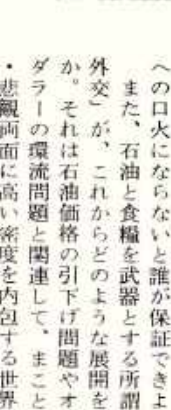 への口火にならないと誰が保証できよ
また、石油と食糧を武器とする所謂
外交」が、これからどのような展開を
か。それは石油価格の引下げ問題やオ
ダラーの環流問題と関連して。まこと
・悲観両面に高い密度を内包する世界